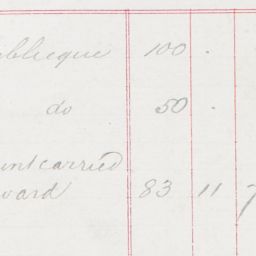 ublicque 100 .
do 50 .
unt carried
ward 83 11 7